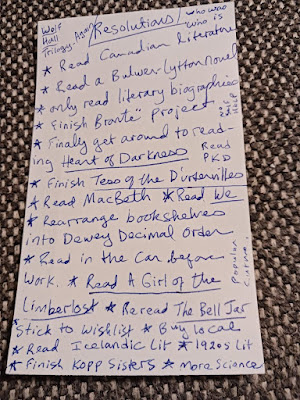 Wolf
Hall
Trilogy. Again
Resolutions
who was
who is
* Read Canadian Literature
* Read a Bulwer-Lytton novel
* only read literary biographies
* Finish Brontë" Project
* Finally get around to read-
ing Heart of Darkness
Not Self
Help
Read
PKD
* Finish Tess of the D'urdervilles
* Read MacBeth * Read We
* Rearrange bookshelves
into Dewey Decimal Order
* Read in the Car before
work. * Read A Girl of the
Limberlost * Reread The Bell Jar
Popular
* Stick to Wishlist * Buy local
* Read Icelandic Lit * 1920s Lit
* Finish Kopp Sisters * more Science